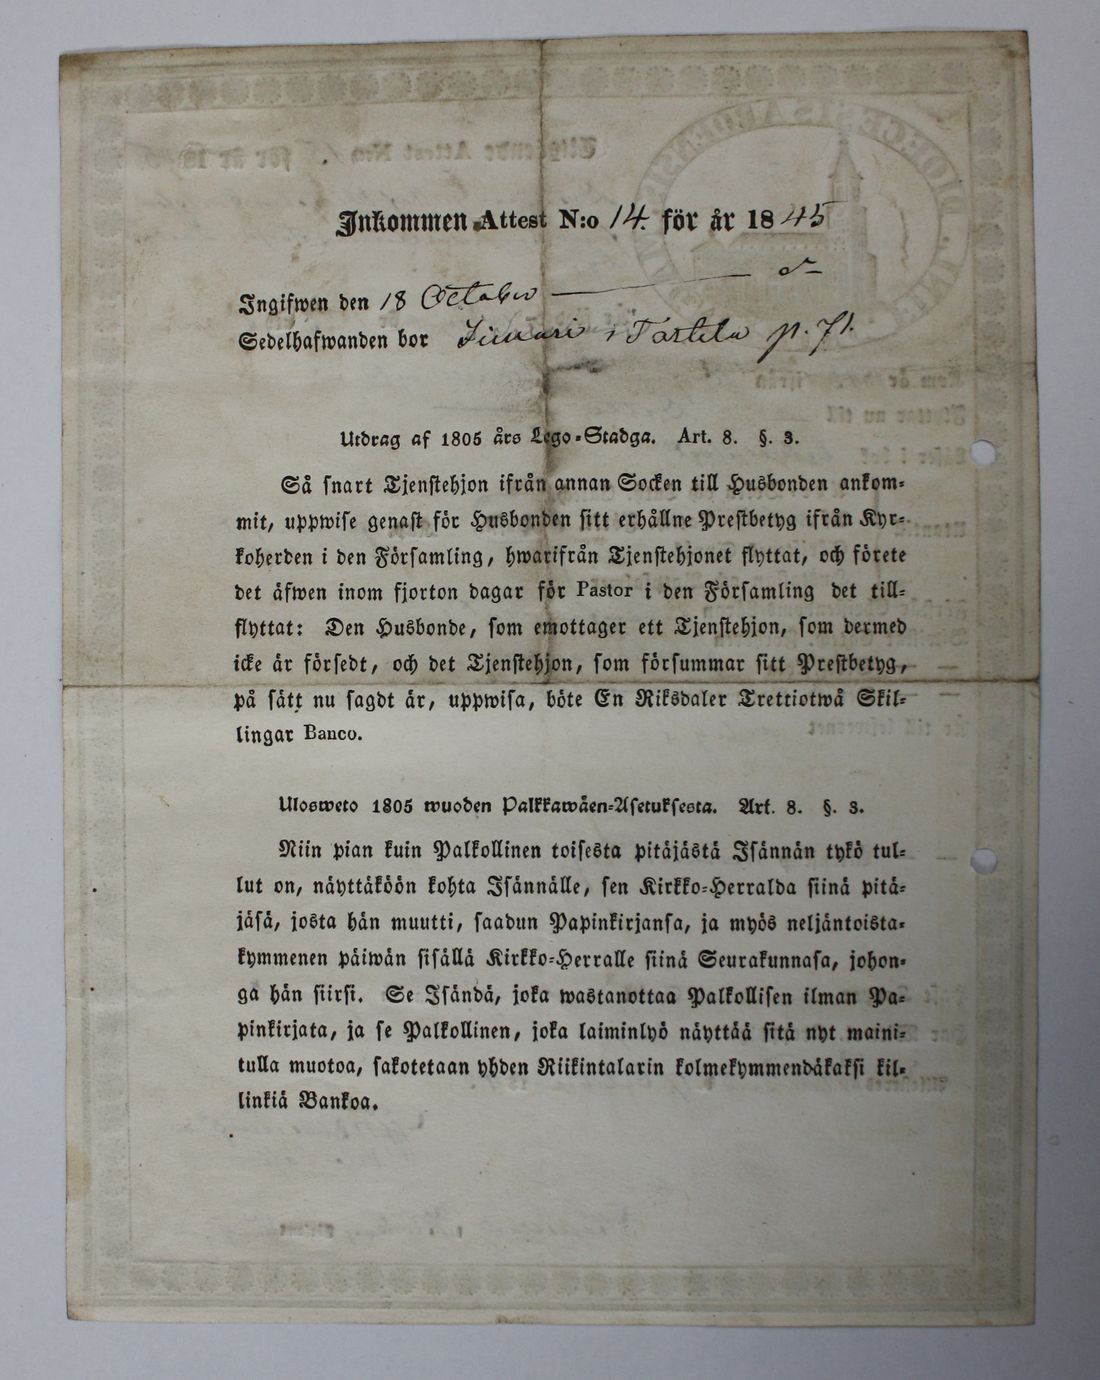 Inkommen Attest N:o 14. för år 1845
Ingifwen den 18 October
Sedelhafwanden bor i p. 71.
Utdrag af 1805 års Lego-Stadga. Art. 8. §. 3.
Så snart Tjenstehjon ifrån annan Socken till Husbonden ankom-
mit, uppwise genast för Husbonden sitt erhållne Prestbetyg ifrån Kyr-
koherden i den Församling, hwarifrån Tjenstehjonet flyttat, och förete
det äfwen inom fjorton dagar för Pastor i den Församling det till-
flyttat: Den Husbonde, som emottager ett Tjenstehjon, som dermed
icke är försedt, och det Tjenstehjon, som försummar sitt Prestbetyg,
på sätt nu sagdt är, uppwisa, böte En Riksdaler Trettiotwå Skil-
lingar Banco.
Ulosweto 1805 wuoden Palkkawäen-Asetuksesta. Art. 8. §. 3.
Niin pian kuin Palkollinen toisesta pitäjästä Isännän tykö tul-
lut on, näyttäköön kohta Isännälle, sen Kirkko-Herralda siinä pitä-
jäsä, josta hän muutti, saadun Papinkirjansa, ja myös neljäntoista-
kymmenen päiwän sisällä Kirkko-Herralle siinä Seurakunnasa, johon-
ga hän siirsi. Se Isändä, joka wastanottaa Palkollisen ilman Pa-
pinkirjata, ja se Palkollinen, joka laiminlyö näyttää sitä nyt maini-
tulla muotoa, sakotetaan yhden Riikintalarin kolmekymmendäkaksi kil-
linkiä Bankoa.